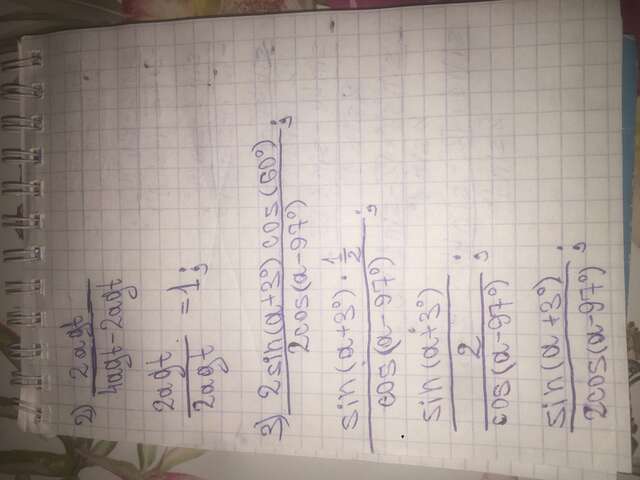 2) 2agt / 4agt-2agt
2agt / 2agt = 1;
3) 2sin(a+3°)cos(60°) / 2cos(a-97°);
sin(a+3°)·1/2 / cos(a-97°);
sin(a+3°) / 2 : / cos(a-97°);
sin(a+3°) / 2cos(a-97°);